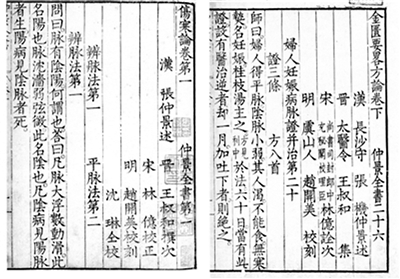 金匱要畧方論卷下 仲景全書二十六
漢 長沙守 張 機仲景述
晉 太醫令 王叔和 集
尚書司封郎中 林億詮次
明 虞山人 趙開美 校刻
婦人妊娠病脉證并治第二十
證三條 方八首
師曰婦人得平脉陰脉小弱其人渴不能食無寒
熱名妊娠桂枝湯主之 於法六十日當有此
證設有醫治逆者却一月加吐下者則絶之
傷寒論卷第一 仲景全書第一
漢 張仲景述 晉 王叔和 撰次
宋 林億 校正
明 趙開美 校刻
沈琳 仝校
辨脉法第一 平脉法第二
辨脉法第一
問曰脉有陰陽何謂也荅曰凡脉大浮數動滑此
名陽也脉沈濇弱弦微此名陰也凡陰病見陽脉
者生陽病見陰脉者死